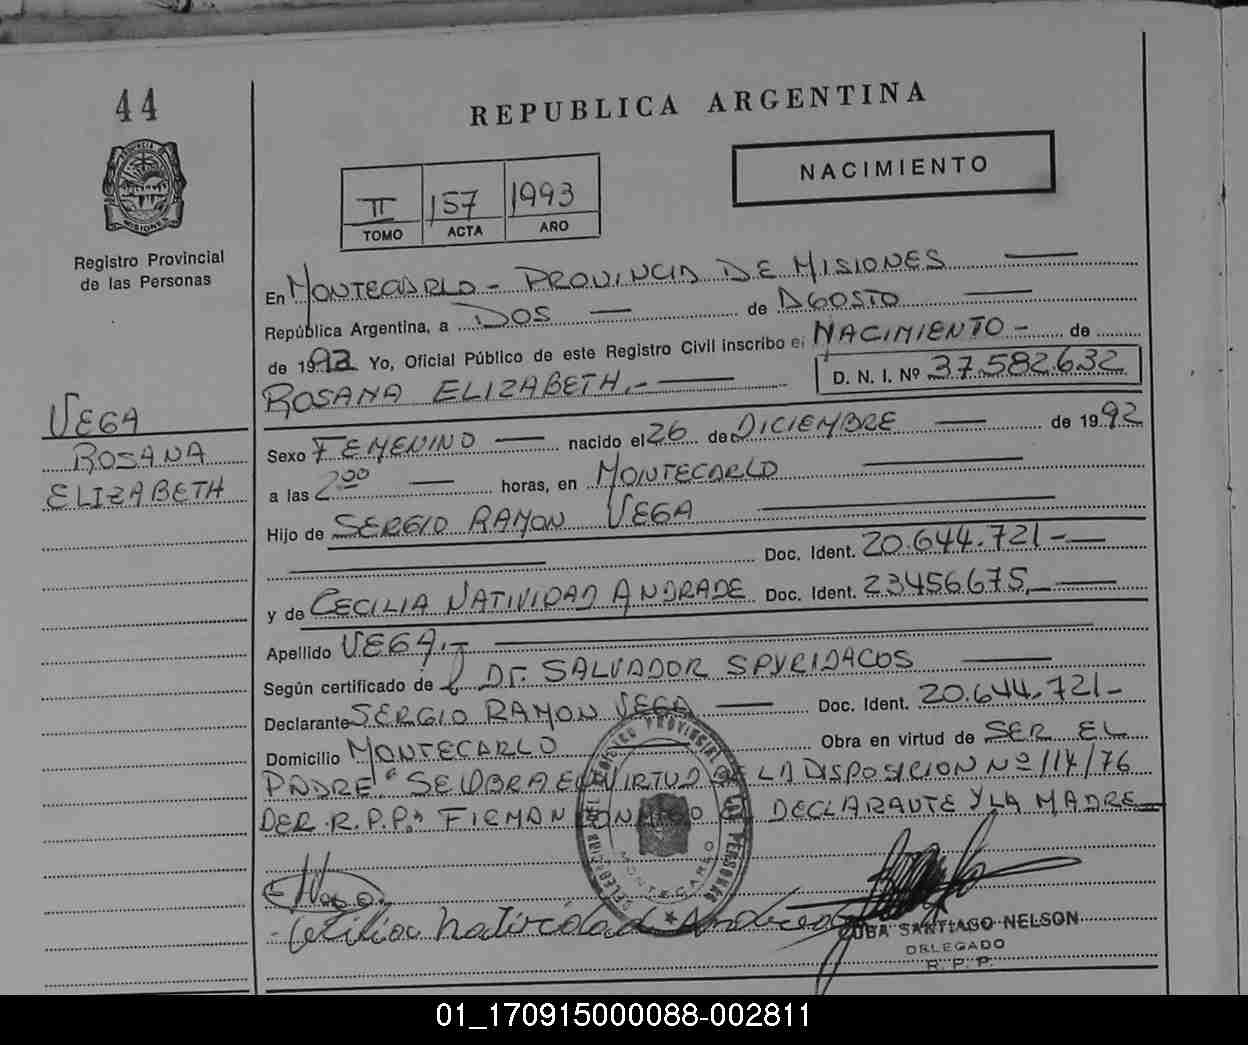 44
REPUBLICA ARGENTINA
NACIMIENTO
II 157 1993
TOMO ACTA AÑO
PROVINCIA DE MISIONES
Registro Provincial
de las Personas
En MONTECARLO - PROVINCIA DE MISIONES
República Argentina, a DOS de AGOSTO
de 1993 Yo, Oficial Público de este Registro Civil inscribo el NACIMIENTO - de
ROSANA ELIZABETH.- D. N. I. Nº 37.582.632
VEGA
ROSANA
ELIZABETH
Sexo FEMENINO nacido el 26 de DICIEMBRE de 1992
a las 2:00 horas, en MONTECARLO
Hijo de SERGIO RAMON VEGA
Doc. Ident. 20.644.721-
y de CECILIA NATIVIDAD ANDRADE Doc. Ident. 23456675.
Apellido VEGA.-
Según certificado de Dr. SALVADOR SPYRIDACOS
Declarante SERGIO RAMON VEGA Doc. Ident. 20.644.721-
Domicilio MONTECARLO Obra en virtud de SER EL
PADRE "SE LABRA EN VIRTUD DE LA DISPOSICION Nº 114/76
DER. R.P.P." FIRMAN CONMIGO EL DECLARANTE Y LA MADRE
REGISTRO PROVINCIAL DE LAS PERSONAS
MONTECARLO
Vega
Cecilia Natividad Andrade
CUBA SANTIAGO NELSON
DELEGADO
R. P. P.
01_170915000088-002811